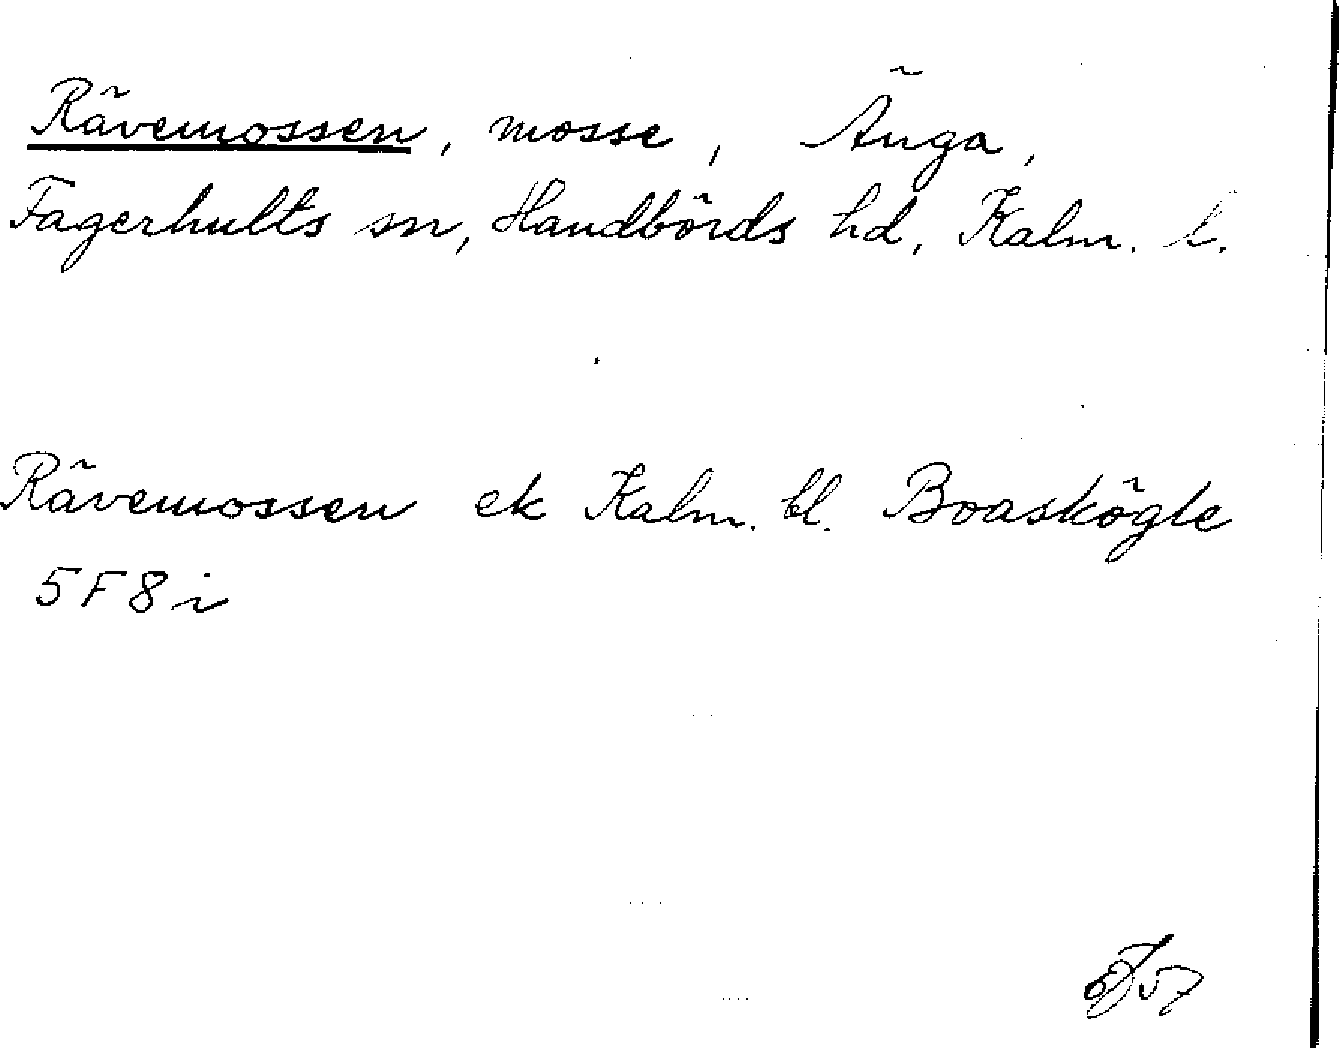 Rävemossen, mosse, Änga,
Fagerhults sn, Handbörds hd, Kalm. l.
Rävemossen ek Kalm. bl. Boaskögle
5F8i